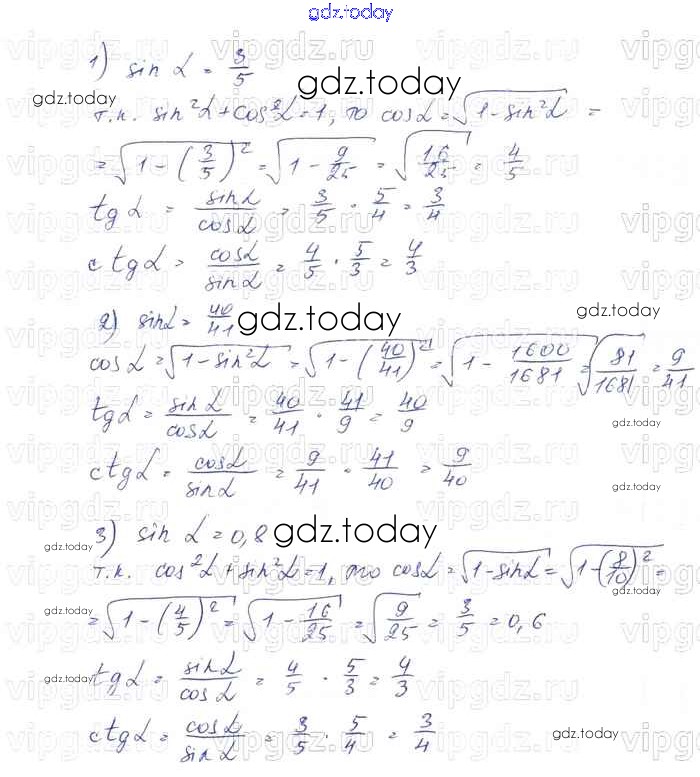 gdz.today
1) sin α = 3/5
gdz.today
gdz.today
т.к. sin²α + cos²α = 1, то cosα = √(1 - sin²α) =
= √(1 - (3/5)²) = √(1 - 9/25) = √(16/25) = 4/5
tg α = sinα/cosα = 3/5 · 5/4 = 3/4
ctgα = cosα/sinα = 4/5 · 5/3 = 4/3
gdz.today
2) sinα = 40/41
gdz.today
cosα = √(1 - sin²α) = √(1 - (40/41)²) = √(1 - 1600/1681) = √(81/1681) = 9/41
tgα = sinα/cosα = 40/41 · 41/9 = 40/9
gdz.today
ctgα = cosα/sinα = 9/41 · 41/40 = 9/40
gdz.today
3) sin α = 0,8
gdz.today
gdz.today
т.к. cos²α + sin²α = 1, то cosα = √(1 - sinα) = √(1 - (8/10)²) =
gdz.today
= √(1 - (4/5)²) = √(1 - 16/25) = √(9/25) = 3/5 = 0,6
gdz.today
tgα = sinα/cosα = 4/5 · 5/3 = 4/3
gdz.today
ctgα = cosα/sinα = 3/5 · 5/4 = 3/4
gdz.today
vipgdz.ru